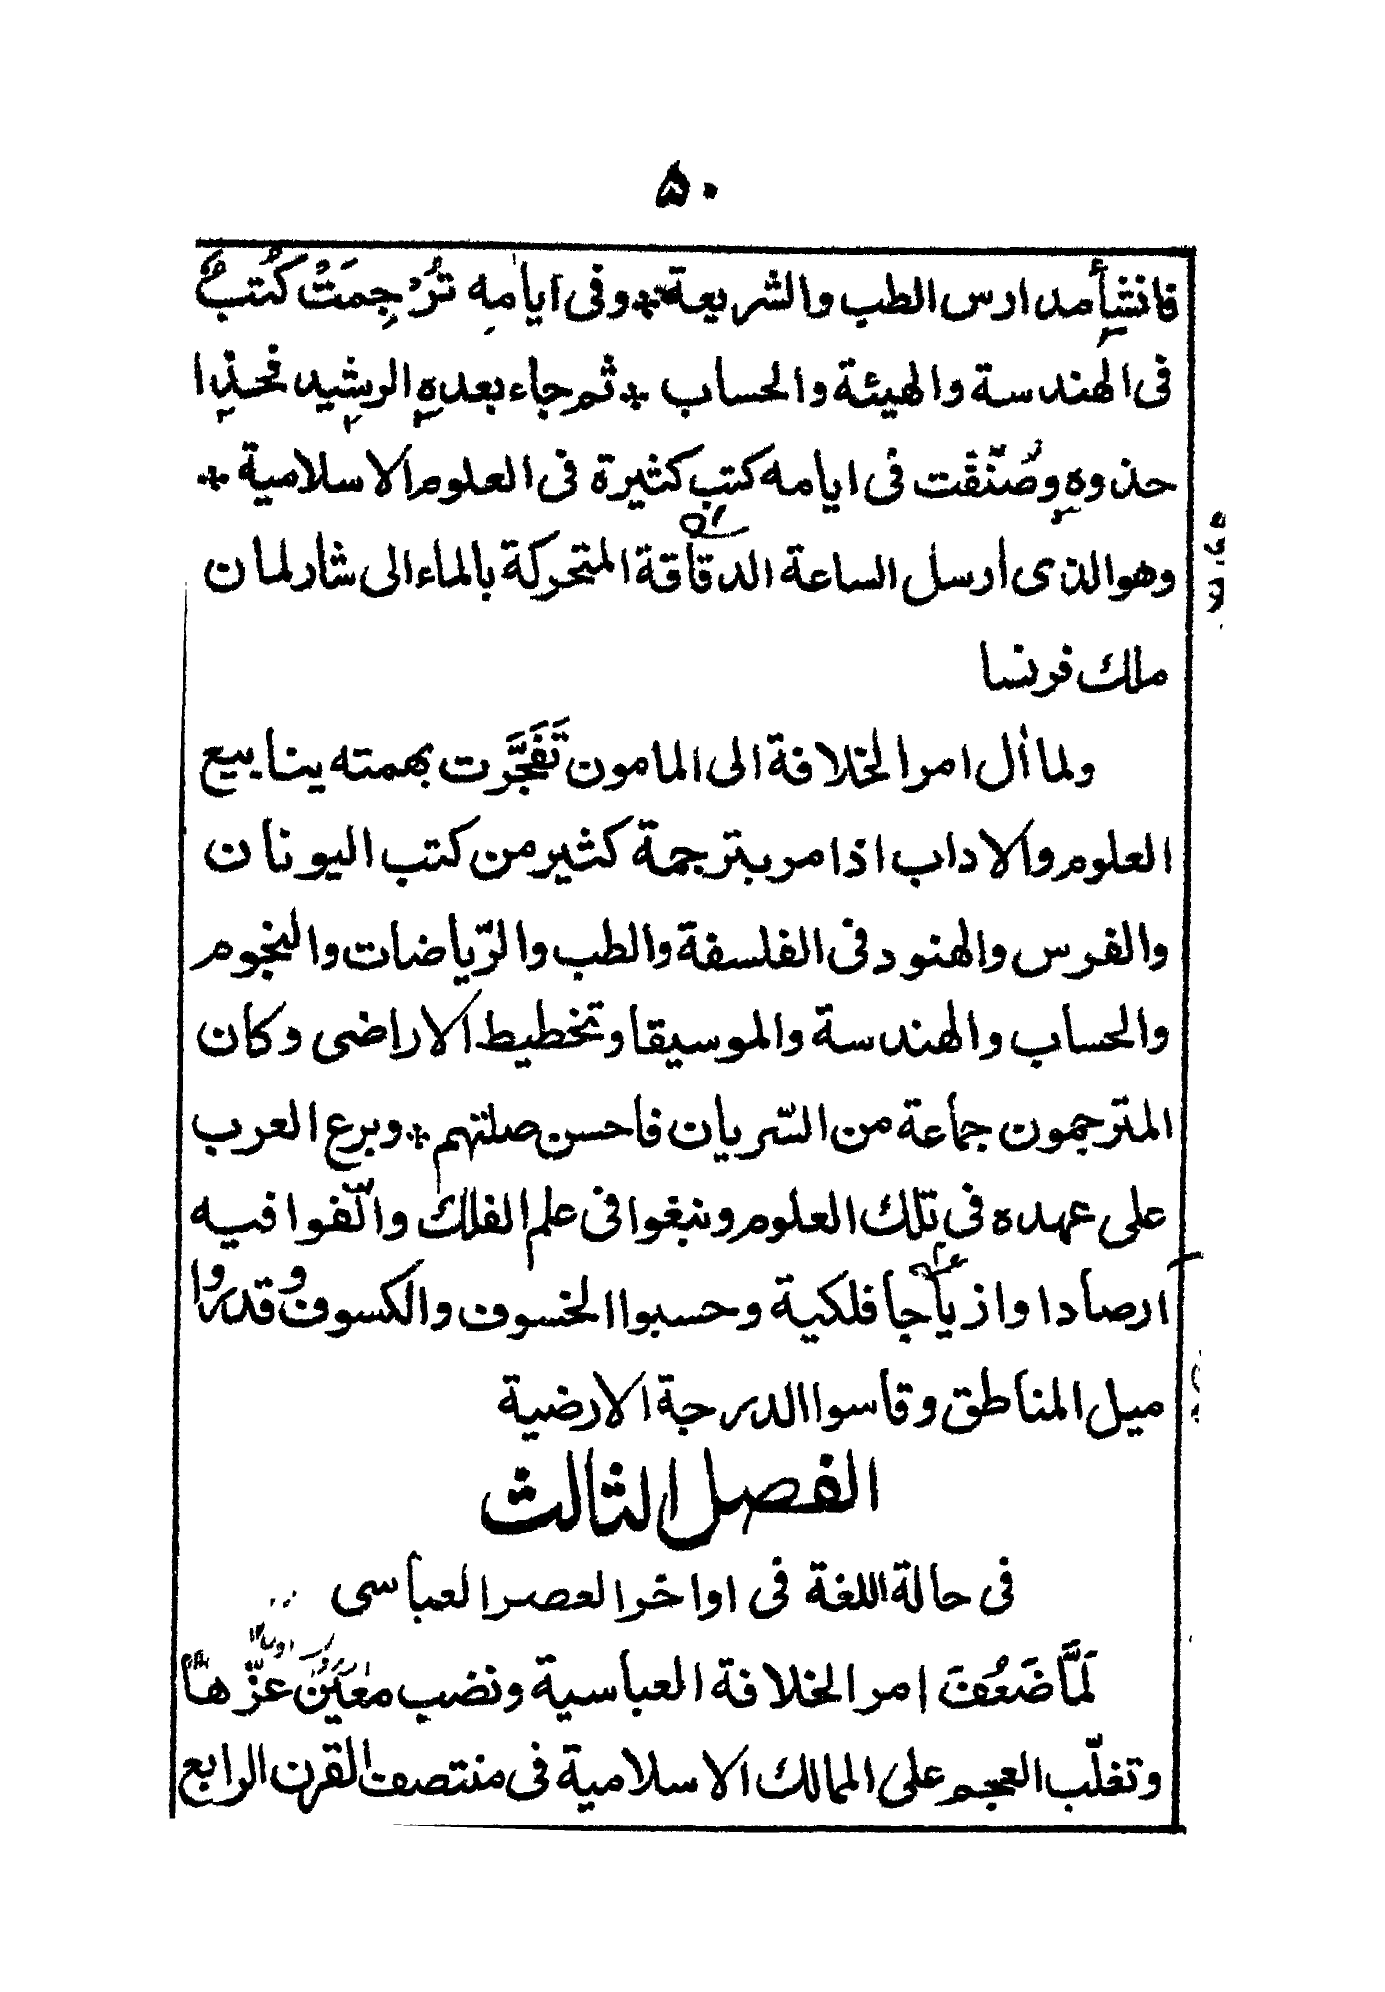 ٥٠
فانشأ مدارس الطب والشريعة * وفى ايامه تُرْجِمَتْ كُتُبٌ
فى الهندسة والهيئة والحساب * ثم جاء بعده الرشيد فحذا
حذوه وصُنّفَت فى ايامه كتب كثيرة فى العلوم الاسلامية *
وهو الذى أرسل الساعة الدقاقة المتحركة بالماء الى شارلمان
ملك فرنسا
ولما أل امر الخلافة الى المامون تَفَجَّرت بهمته ينابيع
العلوم والاداب اذ امر بترجمة كثير من كتب اليونان
والفرس والهنود فى الفلسفة والطب والرّياضات والنجوم
والحساب والهندسة والموسيقا وتخطيط الاراضى وكان
المترجمون جماعة من السّريان فاحسن صلتهم * وبرع العرب
على عهده فى تلك العلوم ونبغوا فى علم الفلك والّفوا فيه
ارصادا وازياجا فلكية وحسبوا الخسوف والكسوف وقدروا
ميل المناطق وقاسوا الدرجة الارضية
الفصل الثالث
فى حالة اللغة فى اواخر العصر العباسى
لَمَّا ضَعُفَ امر الخلافة العباسية ونضب مَعَيّنُ عزّها
وتغلّب العجم على الممالك الاسلامية فى منتصف القرن الرابع